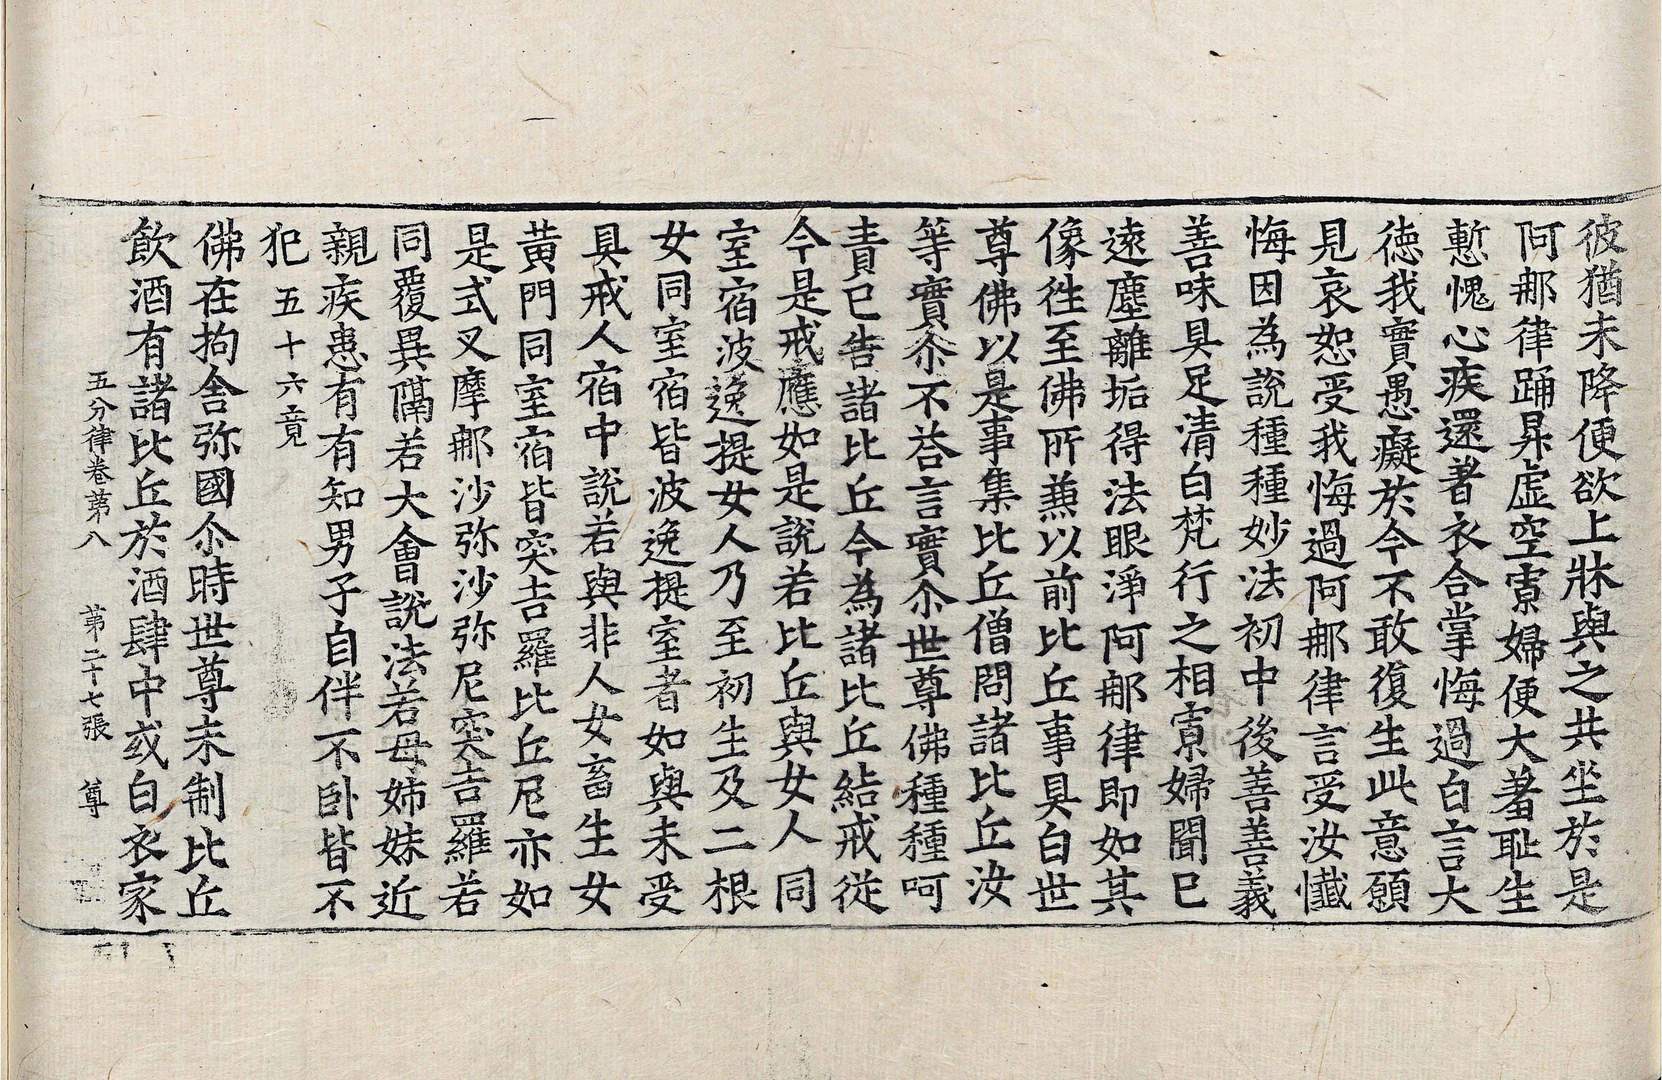 彼猶未降便欲上牀與之共坐於是
阿那律踊昇虛空寡婦便大著恥生
慙愧心疾還著衣合掌悔過白言大
德我實愚癡於今不敢復生此意願
見哀恕受我悔過阿那律言受汝懺
悔因為說種種妙法初中後善善義
善味具足清白梵行之相寡婦聞已
遠塵離垢得法眼淨阿那律即如其
像往至佛所兼以前比丘事具白世
尊佛以是事集比丘僧問諸比丘汝
等實尒不荅言實尒世尊佛種種呵
責已告諸比丘今為諸比丘結戒從
今是戒應如是說若比丘與女人同
室宿波逸提女人乃至初生及二根
女同室宿皆波逸提室者如與未受
具戒人宿中說若與非人女畜生女
黃門同室宿皆突吉羅比丘尼亦如
是式叉摩那沙弥沙弥尼突吉羅若
同覆異隔若大會說法若母姊妹近
親疾患有有知男子自伴不卧皆不
犯五十六竟
佛在拘舍弥國尒時世尊未制比丘
飲酒有諸比丘於酒肆中或白衣家
五分律卷第八 第二十七張 尊